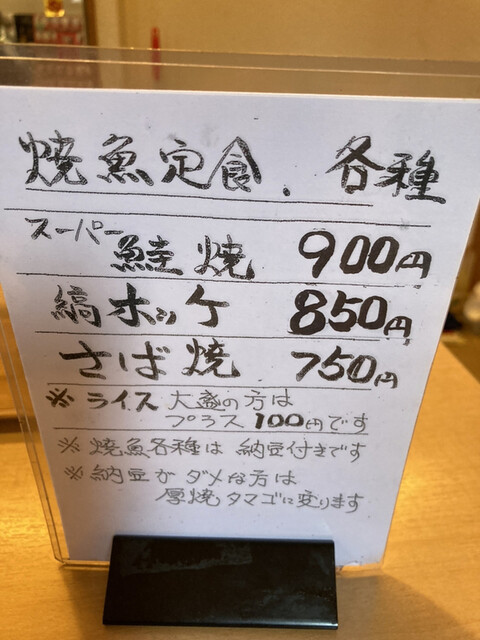 焼魚定食．各種
スーパー鮭焼 900円
縞ホッケ 850円
さば焼 750円
※ ライス 大盛の方は
プラス 100円です
※ 焼魚各種は 納豆付きです
※ 納豆が ダメな方は
厚焼タマゴに変ります